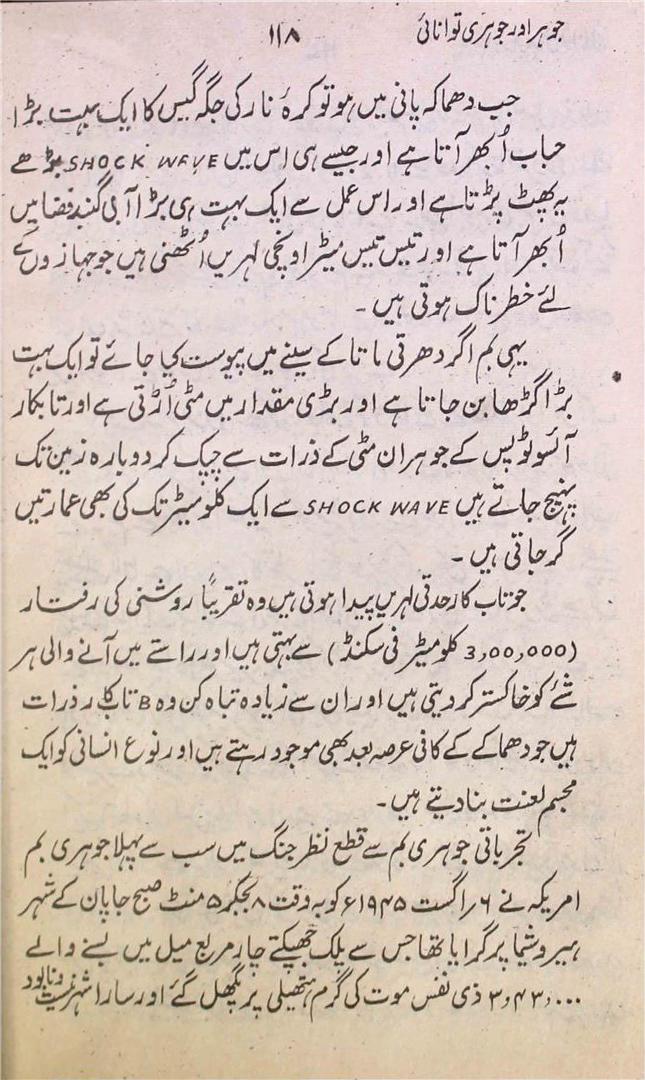 جوہر اور جوہری توانائی
۱۱۸
جب دھماکہ پانی میں ہو تو کرۂ نار کی جگہ گیس کا ایک بہت بڑا
حباب اُبھر آتا ہے اور جیسے ہی اس میں SHOCK WAVE بڑھے
یہ پھٹ پڑتا ہے اور اس عمل سے ایک بہت ہی بڑا آبی گنبد فضا میں
اُبھر آتا ہے اور تیس تیس میٹر اونچی لہریں اُٹھتی ہیں جو جہازوں کے
لئے خطرناک ہوتی ہیں ۔
یہی بم اگر دھرتی ماتا کے سینے میں پیوست کیا جائے تو ایک بہت
بڑا گڑھا بن جاتا ہے اور بڑی مقدار میں مٹی اُڑتی ہے اور تابکار
آئسوٹوپس کے جوہر ان مٹی کے ذرات سے چپک کر دوبارہ زمین تک
پہنچ جاتے ہیں SHOCK WAVE سے ایک کلومیٹر تک کی بھی عمارتیں
گر جاتی ہیں ۔
جو تاب کار حدتی لہریں پیدا ہوتی ہیں وہ تقریباً روشنی کی رفتار
(3,00,000 کلومیٹر فی سکنڈ) سے بہتی ہیں اور راستے میں آنے والی ہر
شئے کو خاکستر کر دیتی ہیں اور ان سے زیادہ تباہ کن وہ B تابکار ذرات
ہیں جو دھماکے کے کافی عرصہ بعد بھی موجود رہتے ہیں اور نوع انسانی کو ایک
مجسم لعنت بنا دیتے ہیں ۔
تجرباتی جوہری بم سے قطع نظر جنگ میں سب سے پہلا جوہری بم
امریکہ نے ۶ر اگست ۱۹۴۵ء کو بہ وقت ۸ بجکر ۵ منٹ صبح جاپان کے شہر
ہیروشیما پر گرایا تھا جس سے پلک جھپکتے چار مربع میل میں بسنے والے
۳,۴۳,۰۰۰ ذی نفس موت کی گرم ہتھیلی پر پگھل گئے اور سارا شہر نیست ونابود